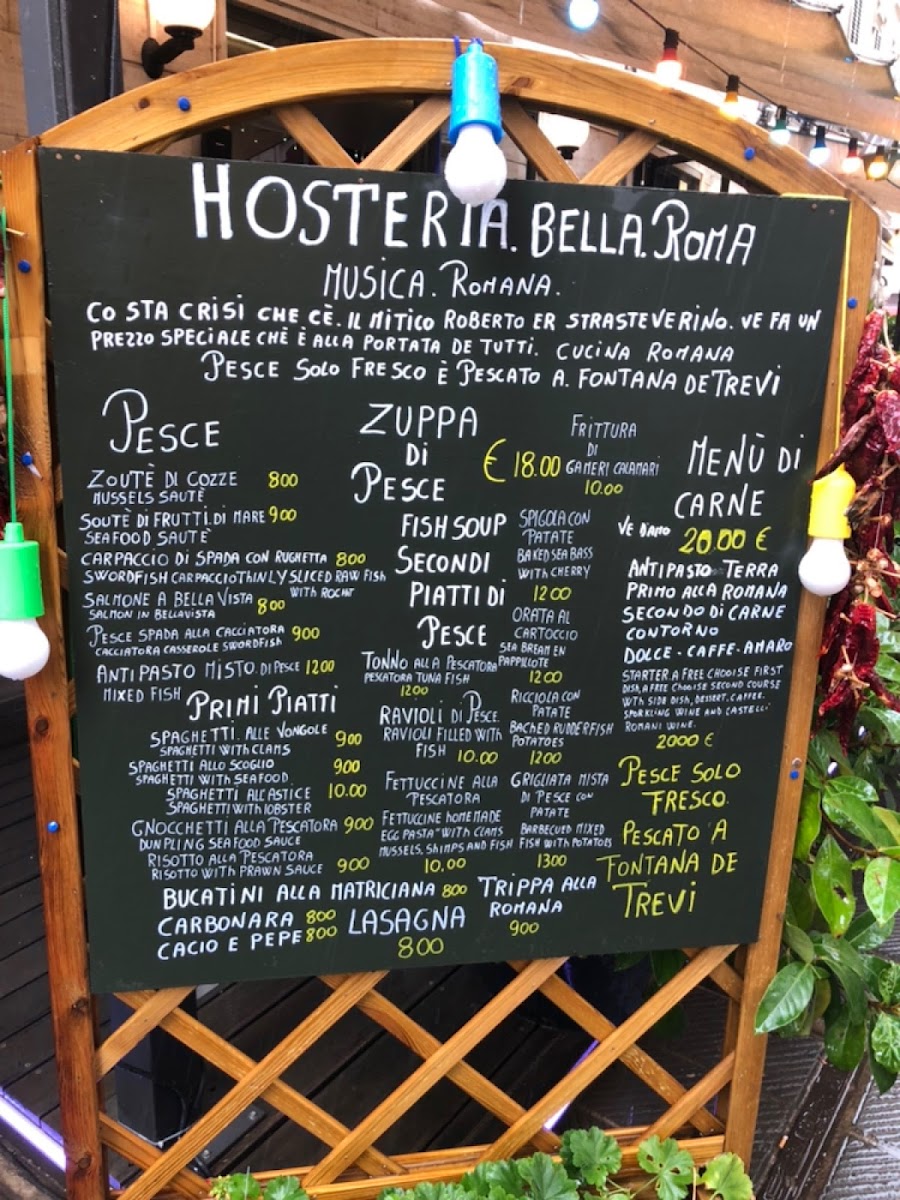 HOSTERIA. BELLA. ROMA
MUSICA. ROMANA.
CO STA CRISI CHE CÈ. IL MITICO ROBERTO ER STRASTEVERINO. VE FA UN
PREZZO SPECIALE CHÈ È ALLA PORTATA DE TUTTI. CUCINA ROMANA
PESCE SOLO FRESCO È PESCATO A. FONTANA DE TREVI
PESCE
ZOUTÈ DI COZZE 800
MUSSELS SAUTÈ
SOUTÈ DI FRUTTI. DI MARE 900
SEAFOOD SAUTÈ
CARPACCIO DI SPADA CON RUGHETTA 800
SWORDFISH CARPACCIO THINLY SLICED RAW FISH
WITH ROCHT
SALMONE A BELLA VISTA 800
SALMON IN BELLAVISTA
PESCE SPADA ALLA CACCIATORA 900
CACCIATORA CASSEROLE SWORDFISH
ANTIPASTO MISTO. DI PESCE 1200
MIXED FISH
PRIMI PIATTI
SPAGHETTI. ALLE VONGOLE 900
SPAGHETTI WITH CLAMS
SPAGHETTI ALLO SCOGLIO 900
SPAGHETTI WITH SEAFOOD
SPAGHETTI ALL'ASTICE 10.00
SPAGHETTI WITH LOBSTER
GNOCCHETTI ALLA PESCATORA 900
DUNPLING SEAFOOD SAUCE
RISOTTO ALLA PESCATORA
RISOTTO WITH PRAWN SAUCE 900
BUCATINI ALLA MATRICIANA 800
CARBONARA 800
CACIO E PEPE 800
ZUPPA
DI
PESCE
€ 18.00
FISH SOUP
SECONDI
PIATTI DI
PESCE
TONNO ALLA PESCATORA
PESCATORA TUNA FISH
1200
RAVIOLI DI PESCE
RAVIOLI FILLED WITH
FISH 10.00
FETTUCCINE ALLA
PESCATORA
FETTUCCINE HOMEMADE
EGG PASTA" WITH CLAMS
MUSSELS, SHIMPS AND FISH
10.00
LASAGNA
800
FRITTURA
DI
GAMERI CALAMARI
10.00
SPIGOLA CON
PATATE
BAKED SEA BASS
WITH CHERRY
1200
ORATA AL
CARTOCCIO
SEA BREAM EN
PAPPILLOTE
1200
RICCIOLA CON
PATATE
BACKED RUDDERFISH
POTATOES
1200
GRIGLIATA MISTA
DI PESCE CON
PATATE
BARBECUED MIXED
FISH WITH POTATOES
1300
TRIPPA ALLA
ROMANA
900
MENÙ DI
CARNE
VE DAMO 20.00 €
ANTIPASTO TERRA
PRIMO ALLA ROMANA
SECONDO DI CARNE
CONTORNO
DOLCE - CAFFE - AMARO
STARTER A FREE CHOOISE FIRST
DISH, A FREE CHOOISE SECOND COURSE
WITH SIDE DISH, DESSERT, CAFFEE.
SPORKLING WINE AND CASTELLI
ROMANI WINE.
2000 €
PESCE SOLO
FRESCO.
PESCATO A
FONTANA DE
TREVI